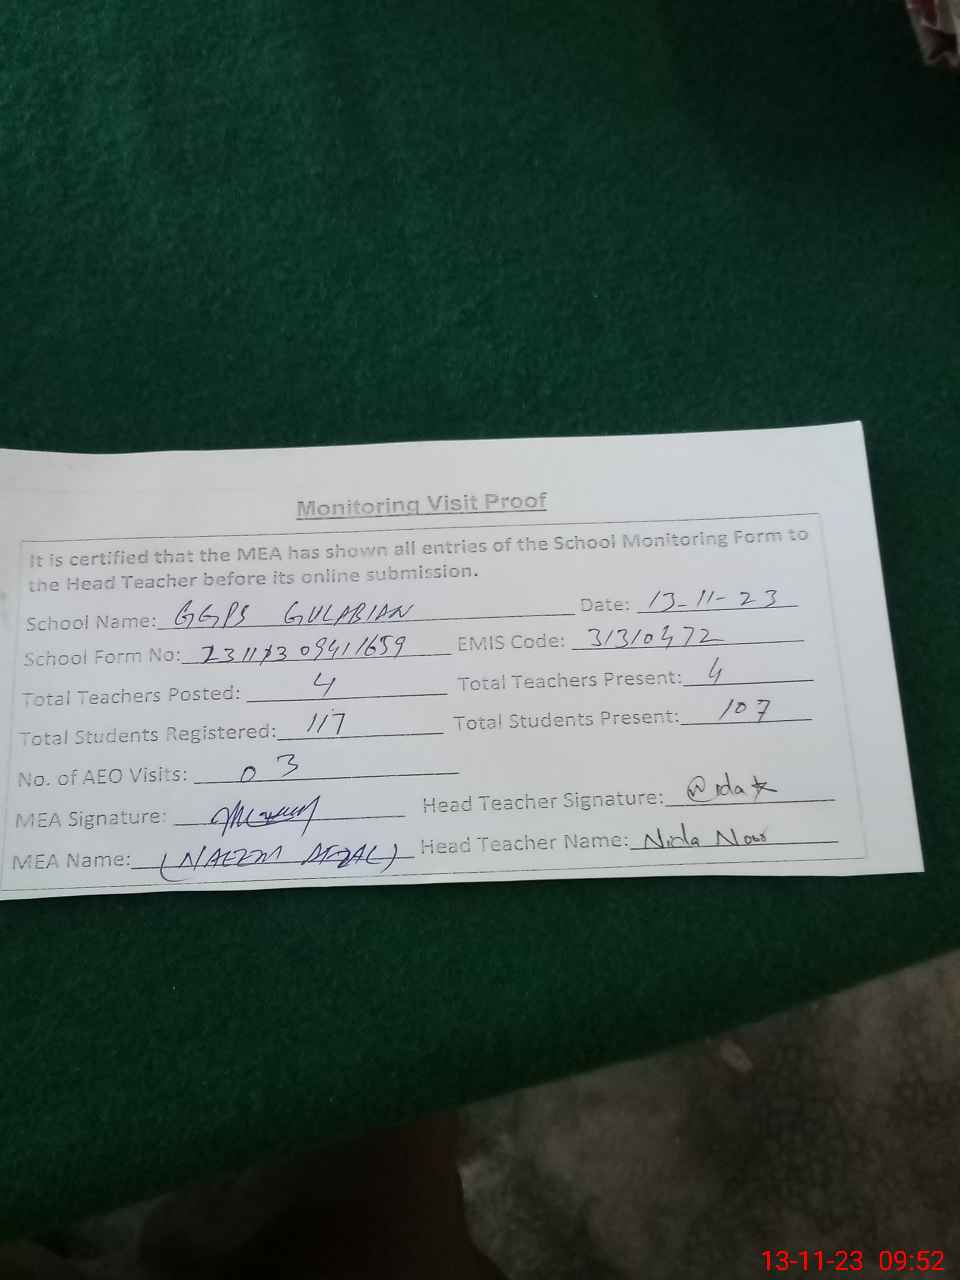 Monitoring Visit Proof
It is certified that the MEA has shown all entries of the School Monitoring Form to
the Head Teacher before its online submission.
School Name: GGPS GULABIAN Date: 13-11-23
School Form No: 23111309411659 EMIS Code: 31310472
Total Teachers Posted: 4 Total Teachers Present: 4
Total Students Registered: 117 Total Students Present: 107
No. of AEO Visits: 03
MEA Signature: Head Teacher Signature:
MEA Name: (NAEEM AFZAL) Head Teacher Name: Nida Noor
13-11-23 09:52